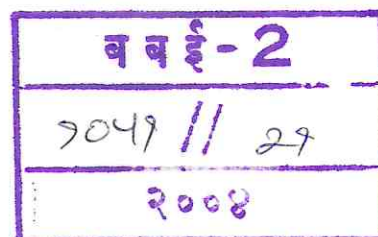 बबई-2
१०५१ // २१
२००४